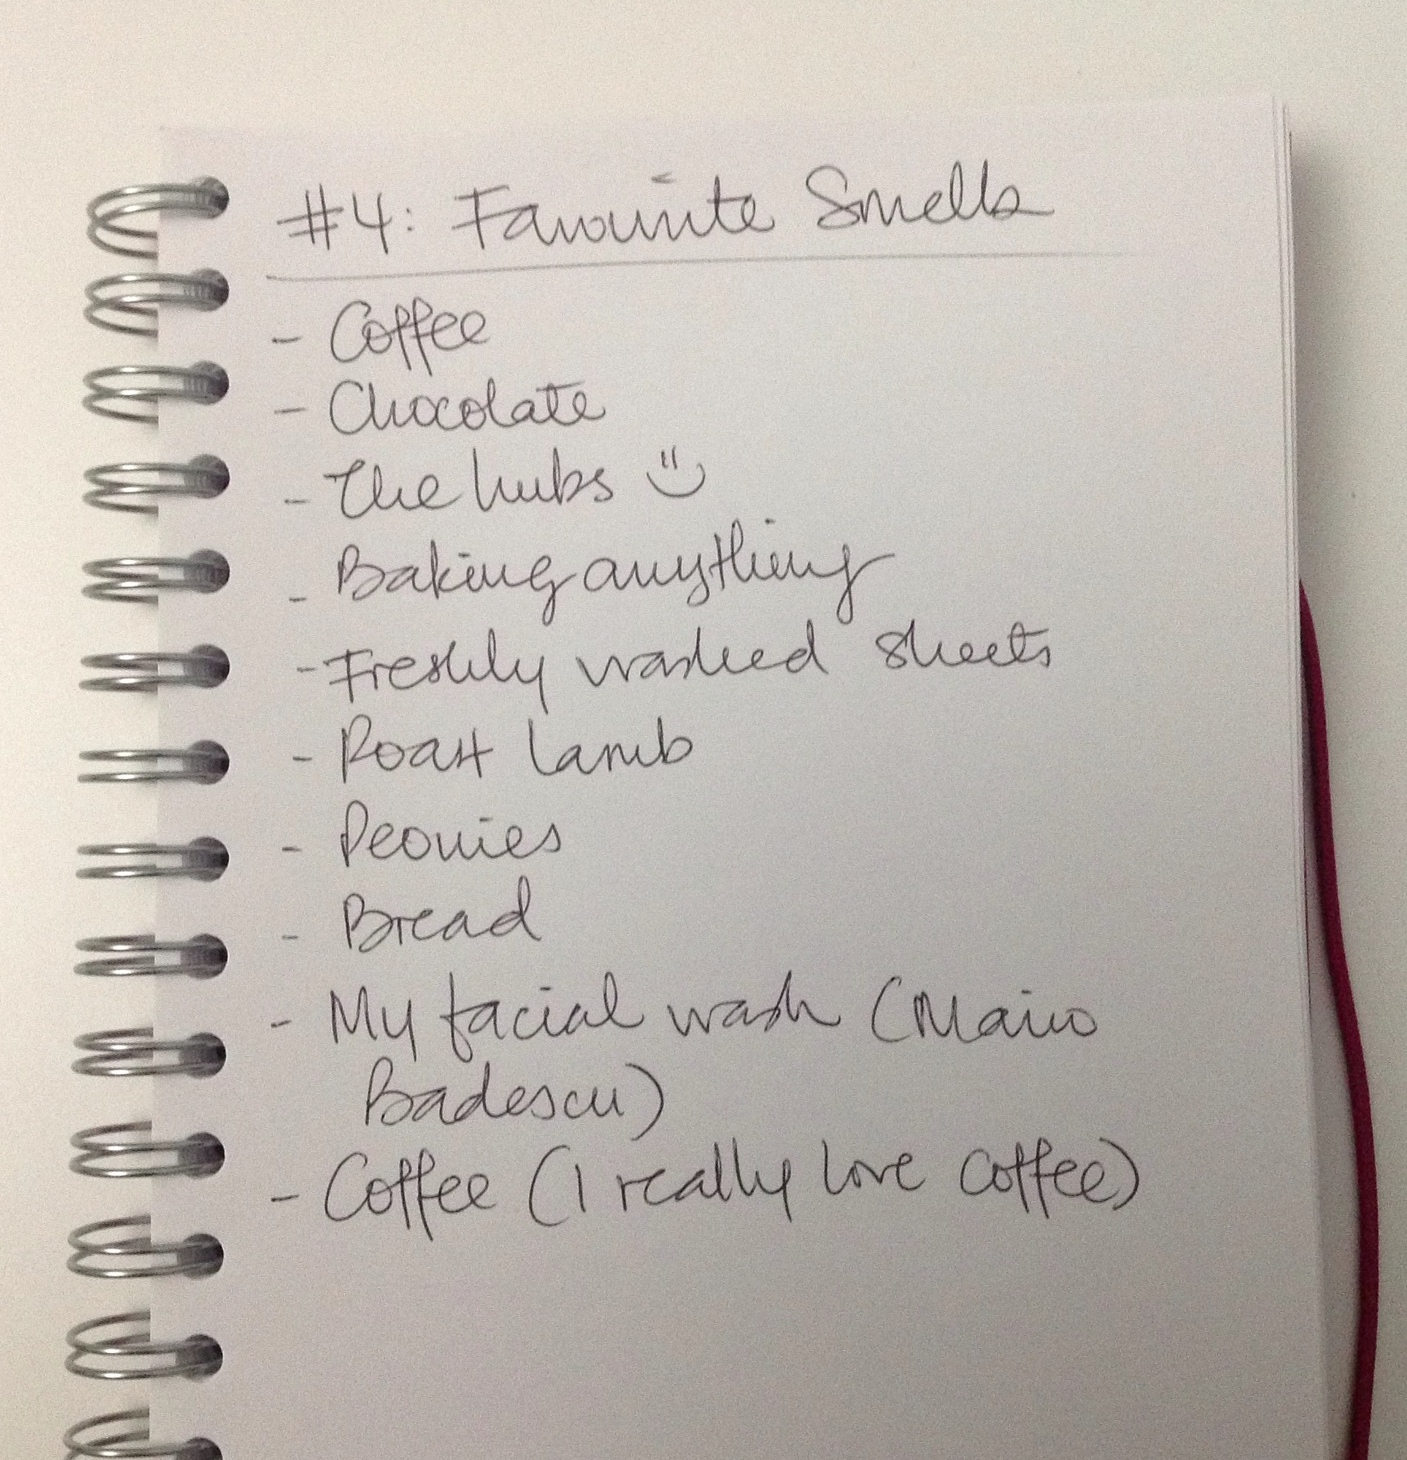 #4: Favourite Smells
- Coffee
- Chocolate
- The hubs
- Baking anything
- Freshly washed sheets
- Roast lamb
- Peonies
- Bread
- My facial wash (Mario
Badescu)
- Coffee (I really love coffee)